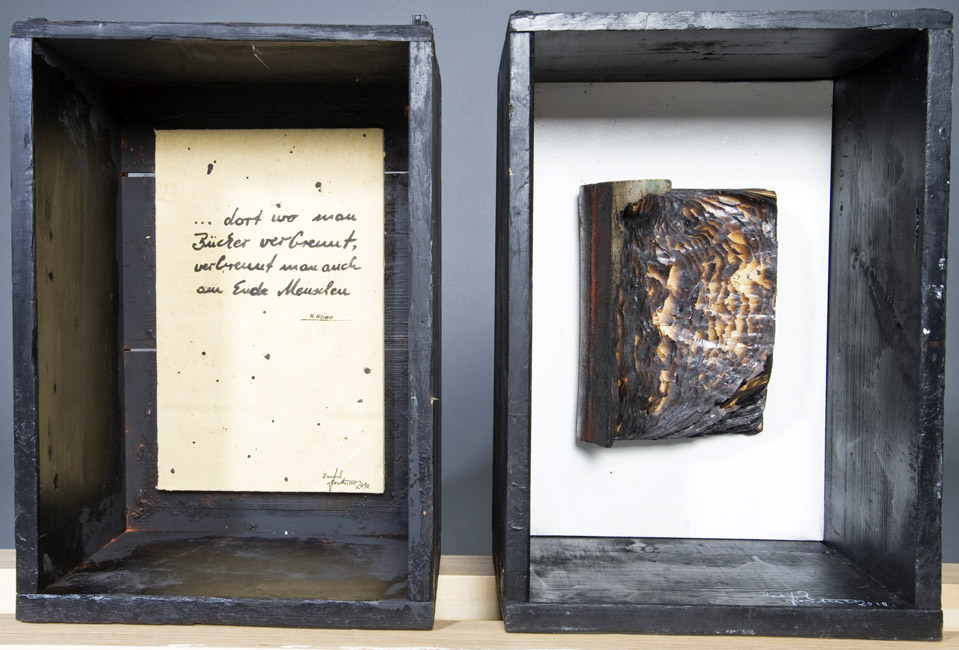 ... dort wo man
Bücher verbrennt,
verbrennt man auch
am Ende Menschen
H. Heine
2018